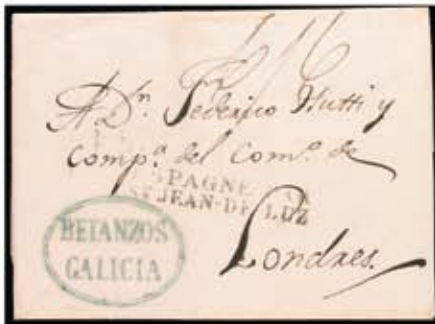 A Dⁿ. Federico Hutti y
Compª. del Comº. de
ESPAGNE PAR
Sᵗ JEAN-DE-LUZ
Londres.
BETANZOS
GALICIA